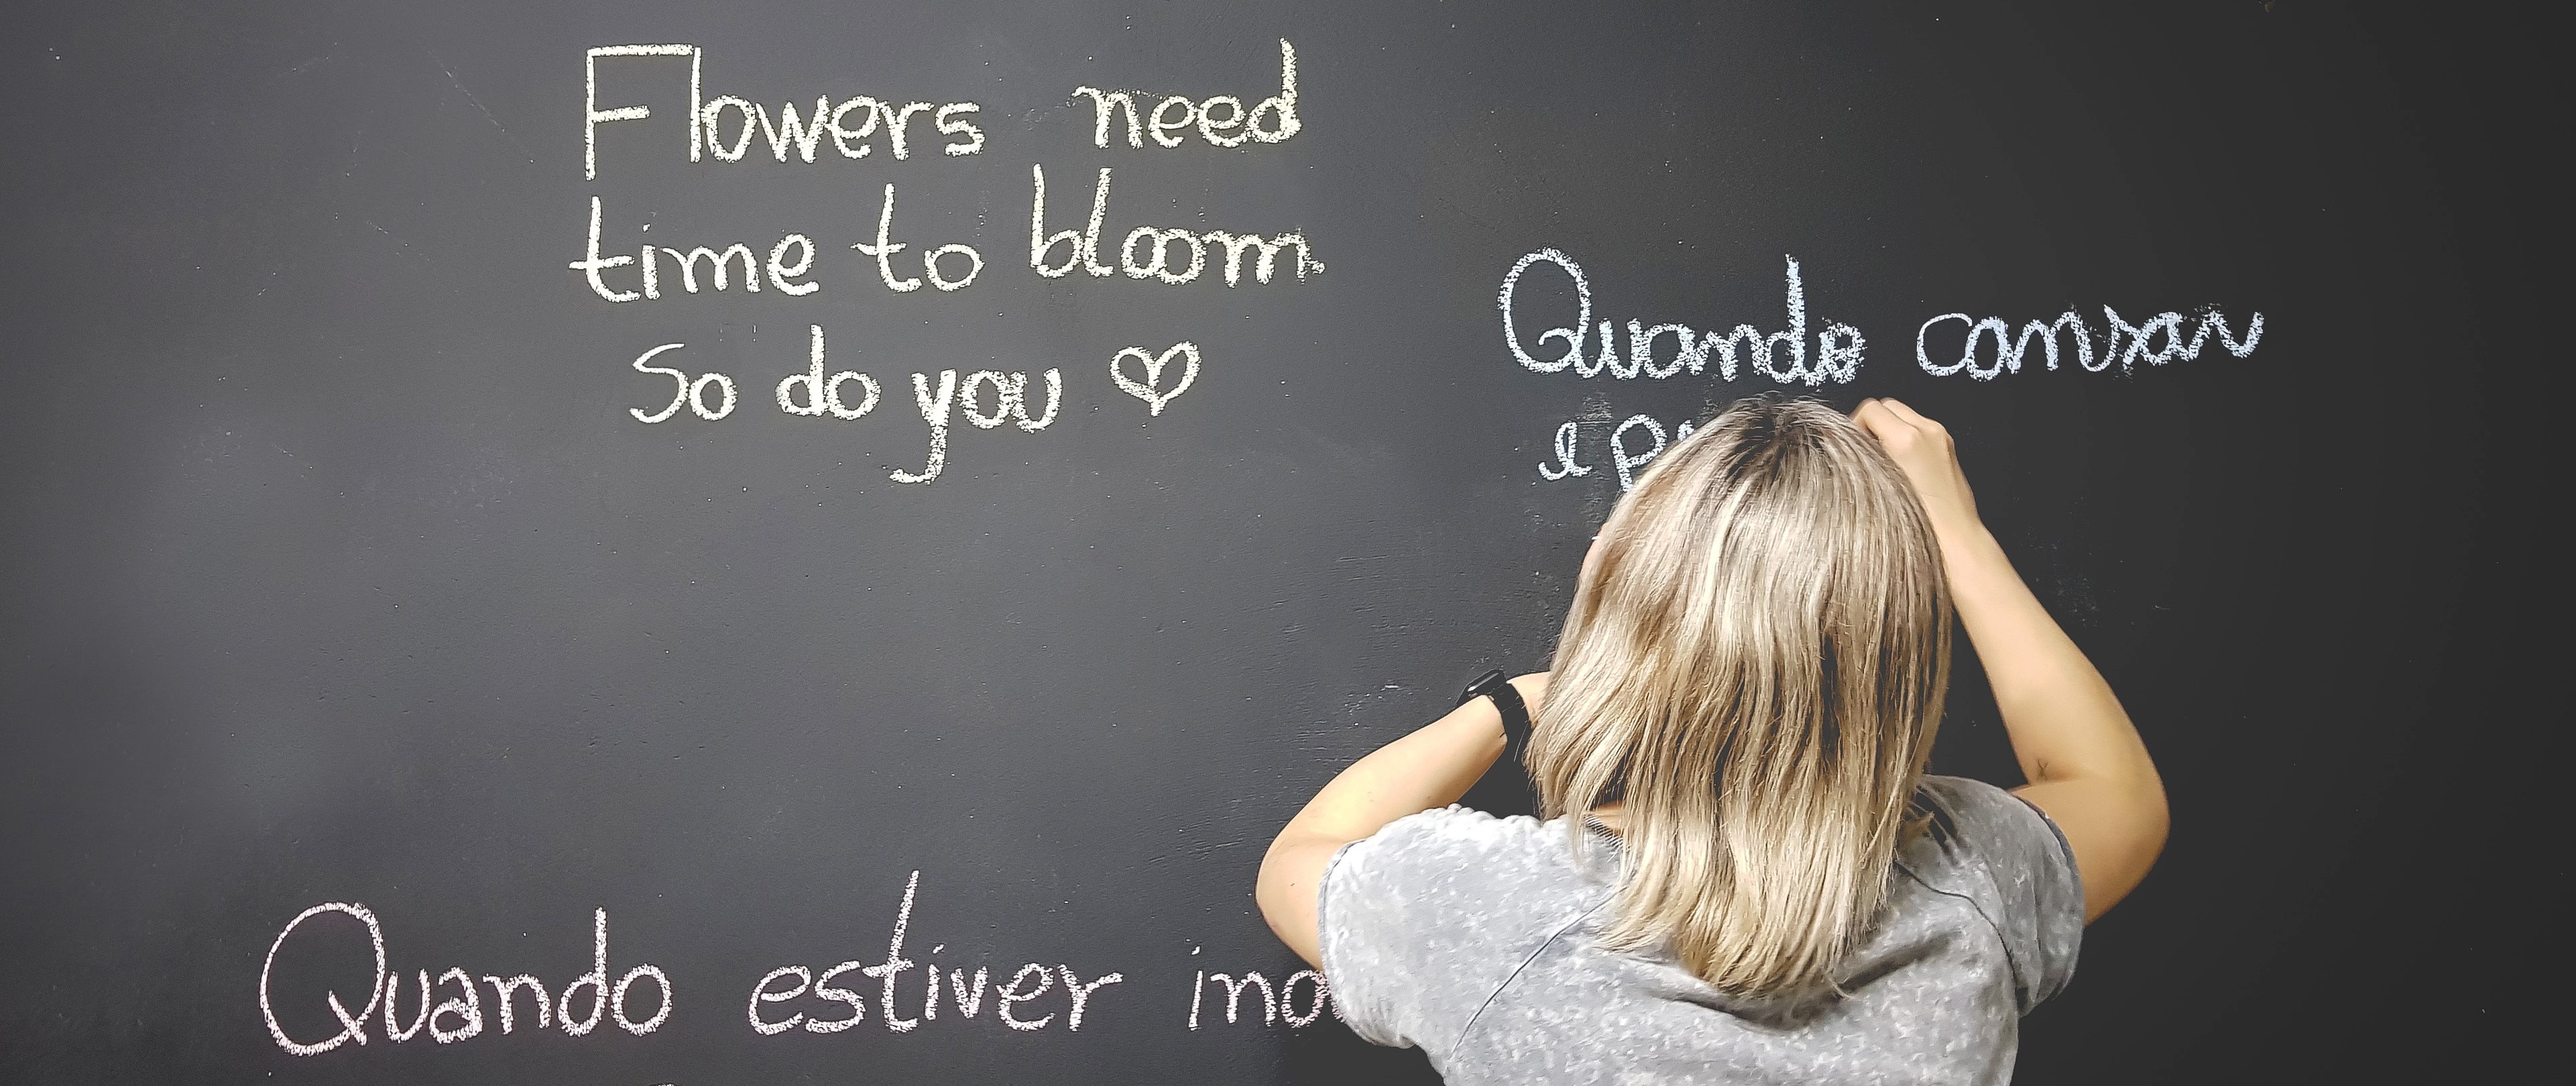 Flowers need
time to bloom.
So do you ♡
Quando cansar
e
Quando estiver